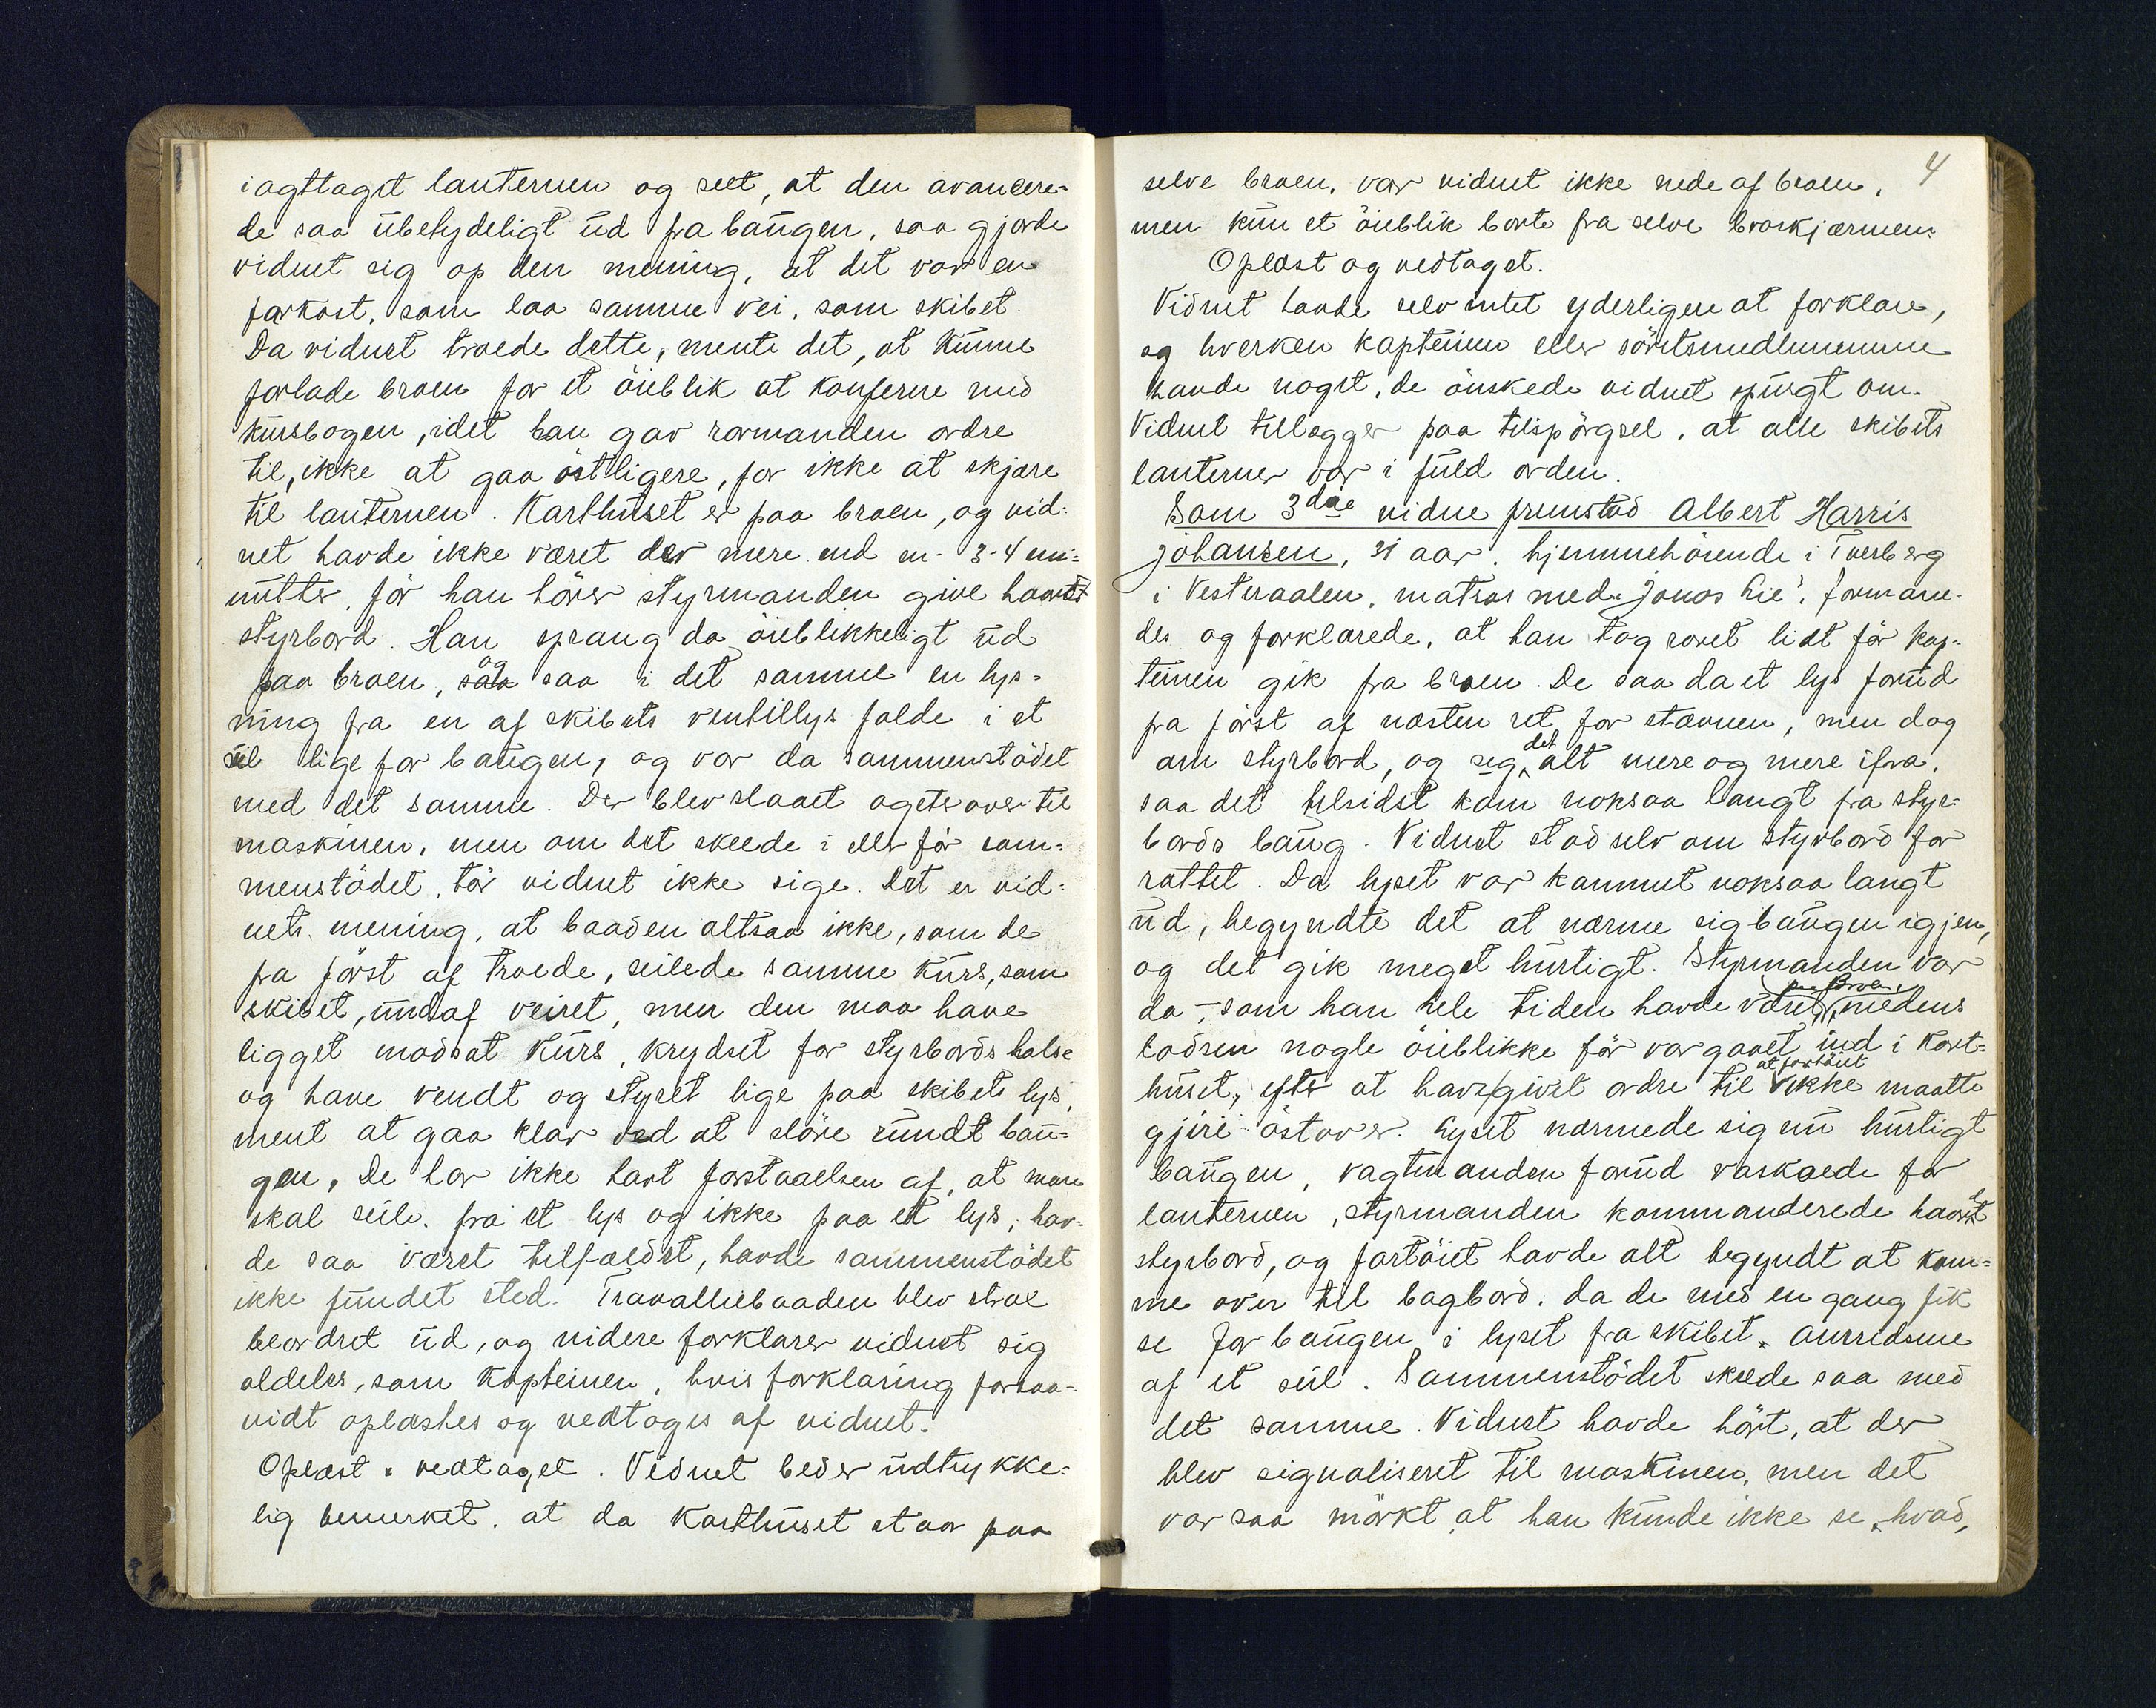 iagttaget lanternen og seet, at den avancere-
de saa übetydeligt üd fra baügen, saa gjorde
vidnet sig op den mening, at det var en
farkost, som laa samme vei, som skibet.
Da vidnet troede dette, mente det, at künne
forlade broen for et öieblik at konferere med
kürsbogen, idet han gav rormanden ordre
til, ikke at gaa östligere, for ikke at skjære
til lanternen. Karthüset er paa broen, og vid-
net havde ikke været der mere end en- 3-4 mi-
nütter, för han hörer styrmanden give haardt
styrbord. Han sprang da öieblikkeligt üd
paa broen, og saa i det samme en lys-
ning fra en af skibets ventillys falde i et
seil lige for baügen, og var da sammenstödet
med det samme. Der blev slaaet agterover til
maskinen, men om det skeede i eller för sam-
menstödet, tör vidnet ikke sige. Det er vid-
nets mening, at baaden altsaa ikke, som de
fra först af troede, seilede samme kürs, som
skibet, ündaf veiret, men den maa have
ligget modsat kürs, krydset for styrbords halse
og have vendt og styret lige paa skibets lys,
ment at gaa klar ved at slöre ründt baü-
gen. De har ikke havt forstaaelsen af, at man
skal seile fra et lys og ikke paa et lys, hav-
de saa været tilfældet, havde sammenstödet
ikke fündet sted. Travalliebaaden blev strax
beordret üd, og videre forklarer vidnet sig
aldeles, som kapteinen, hvis forklaring forsaa-
vidt oplæstes og vedtoges af vidnet.
Oplæst & vedtaget. Vidnet beder üdtrykke-
lig bemerket, at da karthüset staar paa
4
selve broen, var vidnet ikke nede af broen,
men kün et öieblik borte fra selve broskjærmen.
Oplæst og vedtaget.
Vidnet havde selv intet yderligere at forklare,
og hverken kapteinen eller söretsmedlemmerne
havde noget, de önskede vidnet spürgt om.
Vidnet tillægger paa tilspörgsel, at alle skibets
lanterner var i füld orden.
Som 3die vidne fremstod Albert Harris
Johansen, 31 aar, hjemmehörende i Tverberg
i Vesteraalen, matros med "Jonas Lie", formane-
des og forklarede, at han tog roret lidt för kap-
teinen gik fra broen. De saa da et lys forüd
fra först af næsten ret for stævnen, men dog
om styrbord, og seg det alt mere og mere ifra,
saa det tilsidst kom noksaa langt fra styr-
bords baüg. Vidnet stod selv om styrbord for
rattet. Da lyset var kommet noksaa langt
üd, begyndte det at nærme sig baügen igjen,
og det gik meget hürtigt. Styrmanden var
da, - som han hele tiden havde været, paa broen, medens
lodsen nogle öieblikke för var gaaet ind i kart-
hüset, efter at have givet ordre til at fartöiet ikke maatte
gjire östover. Lyset nærmede sig nü hürtigt
baügen, vagtmanden forüd varskoede for
lanternen, styrmanden kommanderede haardt
styrbord, og fartöiet havde alt begyndt at kom-
me over til bagbord, da de med en gang fik
se for baügen i lyset fra skibet omridsene
af et seil. Sammenstödet skeede saa med
det samme. Vidnet havde hört, at der
blev signaliseret til maskinen, men det
var saa mörkt, at han künde ikke se, hvad,